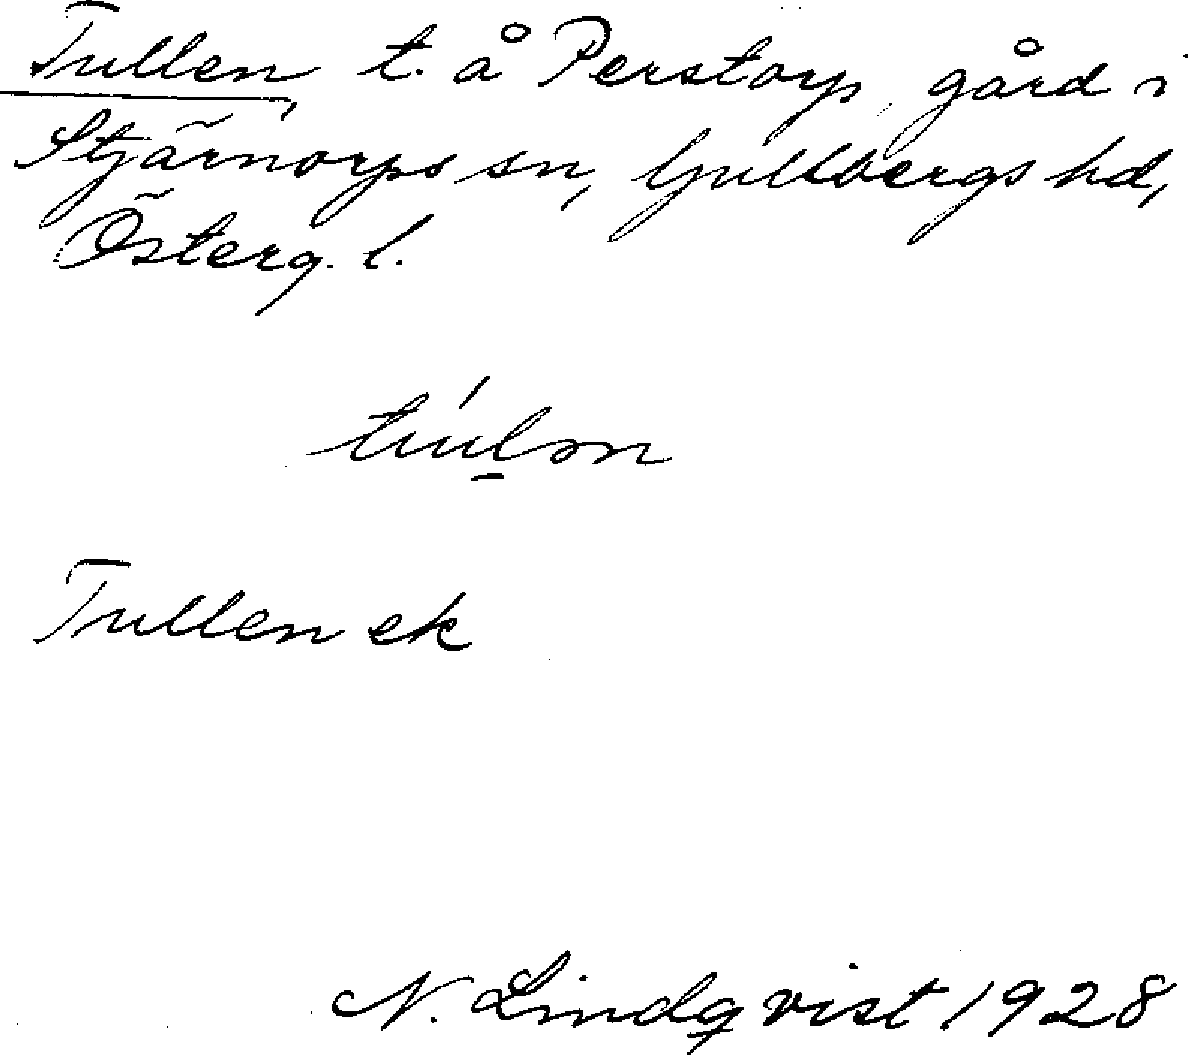 Tullen, t. å Perstorp, gård i
Stjärnorps sn, Gullbergs hd,
Österg. l.
Tullen ek
N. Lindqvist 1928